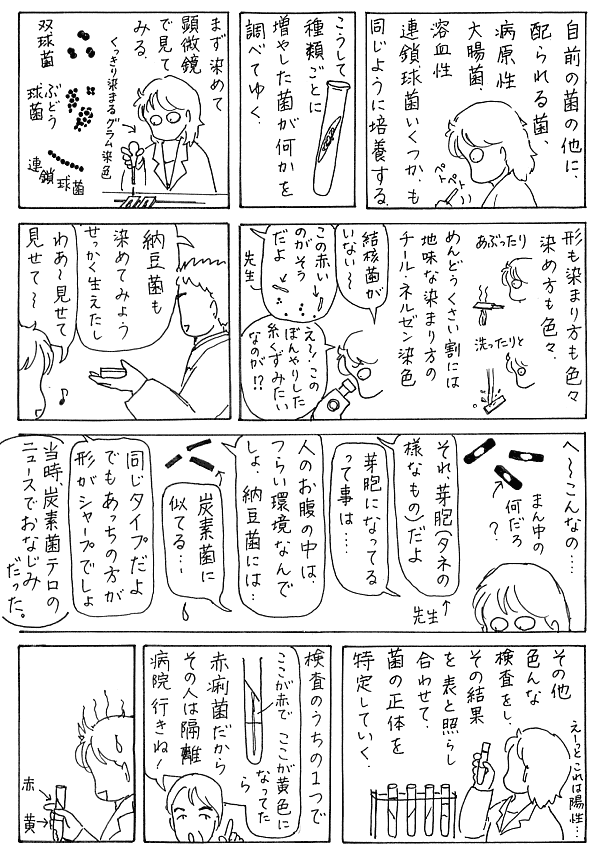 自前の菌の他に、
配られる菌、
病原性
大腸菌、
溶血性
連鎖球菌いくつか、も
同じように培養する。
ペトペト
こうして
種類ごとに
増やした菌が何かを
調べてゆく。
まず染めて
顕微鏡
で見て
みる。
くっきり染まるグラム染色
双球菌
ぶどう
球菌
連鎖球菌
形も染まり方も色々
染め方も色々、
あぶったり
洗ったりと
めんどうくさい割には
地味な染まり方の
チール・ネルゼン染色
結核菌が
いない〜
この赤い
のがそう
だよ
先生
え〜!この
ぼんやりした
糸くずみたい
なのが!?
納豆菌も
染めてみよう
せっかく生えたし
わあ〜見せて
見せて〜♪
へ〜こんなの…
まん中の
何だろ
?
それ、芽胞(タネの
様なもの)だよ
先生
芽胞になってる
って事は…
人のお腹の中は、
つらい環境なんで
しょ、納豆菌には…
炭素菌に
似てる…
同じタイプだよ
でもあっちの方が
形がシャープでしょ
当時、炭素菌テロの
ニュースでおなじみ
だった。
その他
色んな
検査をし、
その結果
を表と照らし
合わせて、
菌の正体を
特定していく。
えーっとこれは陽性…
検査のうちの1つで
ここが赤で ここが黄色に
なってた
ら
赤痢菌だから
その人は隔離
病院行きね!
赤
黄